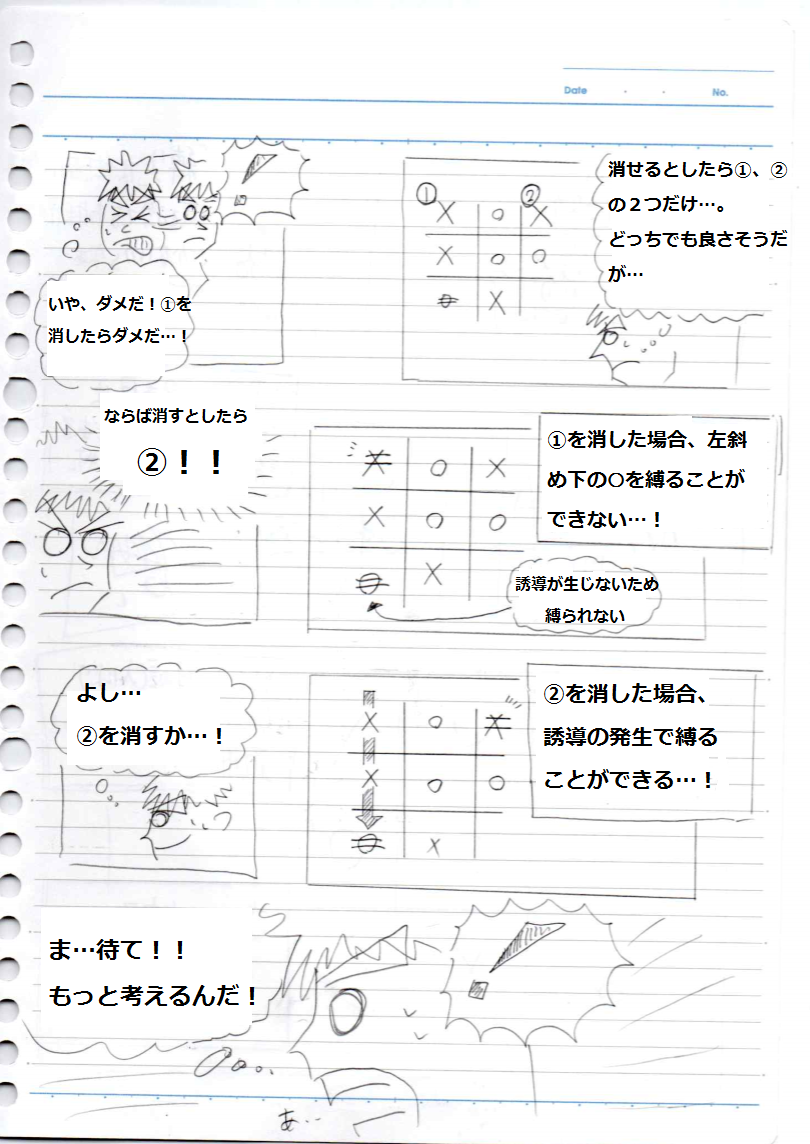 Date
No.
消せるとしたら①、②
の２つだけ…。
どっちでも良さそうだ
が…
① ②
X ○ X
X ○ ○
○ X
いや、ダメだ！①を
消したらダメだ…！
①を消した場合、左斜
め下の○を縛ることが
できない…！
X ○ X
X ○ ○
○ X
誘導が生じないため
縛られない
ならば消すとしたら
②！！
②を消した場合、
誘導の発生で縛る
ことができる…！
X ○ X
X ○ ○
○ X
よし…
②を消すか…！
！
ま…待て！！
もっと考えるんだ！
あ…